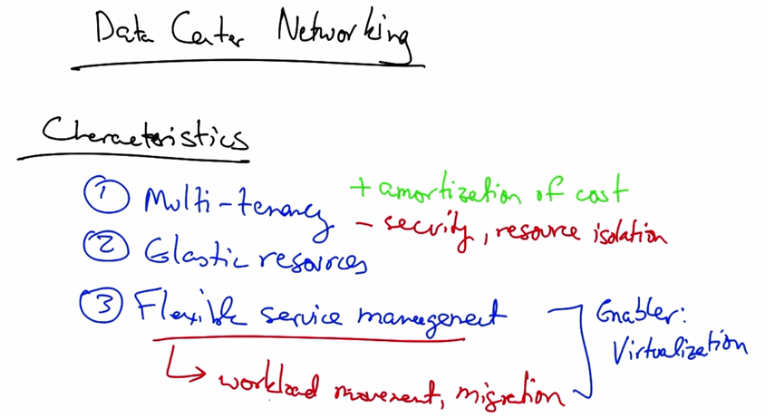 Data Center Networking
Characteristics
① Multi-tenancy
+ amortization of cost
- security, resource isolation
② Elastic resources
③ Flexible service management
↳ workload movement, migration
Enabler:
Virtualization